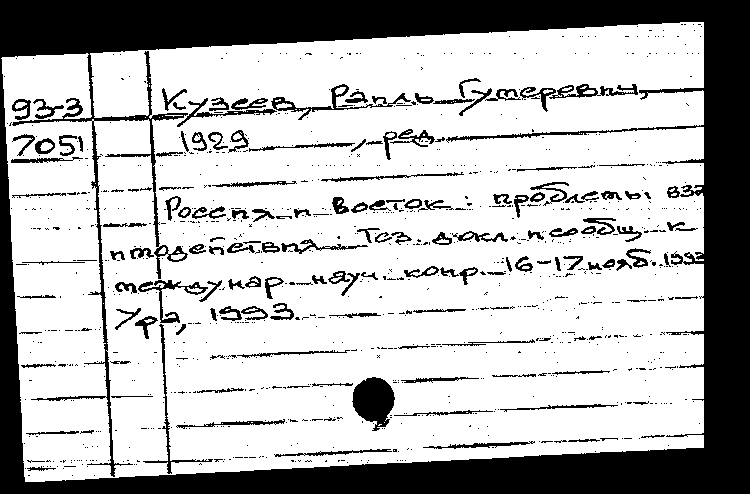 93-3 Кузеев, Раиль Гумеревич,
7051 1929 , ред.
Россия и Восток : проблемы вза
имодействия : Тез. докл. и сообщ. к
междунар. науч. конф. 16-17 нояб. 1993
Уфа, 1993.